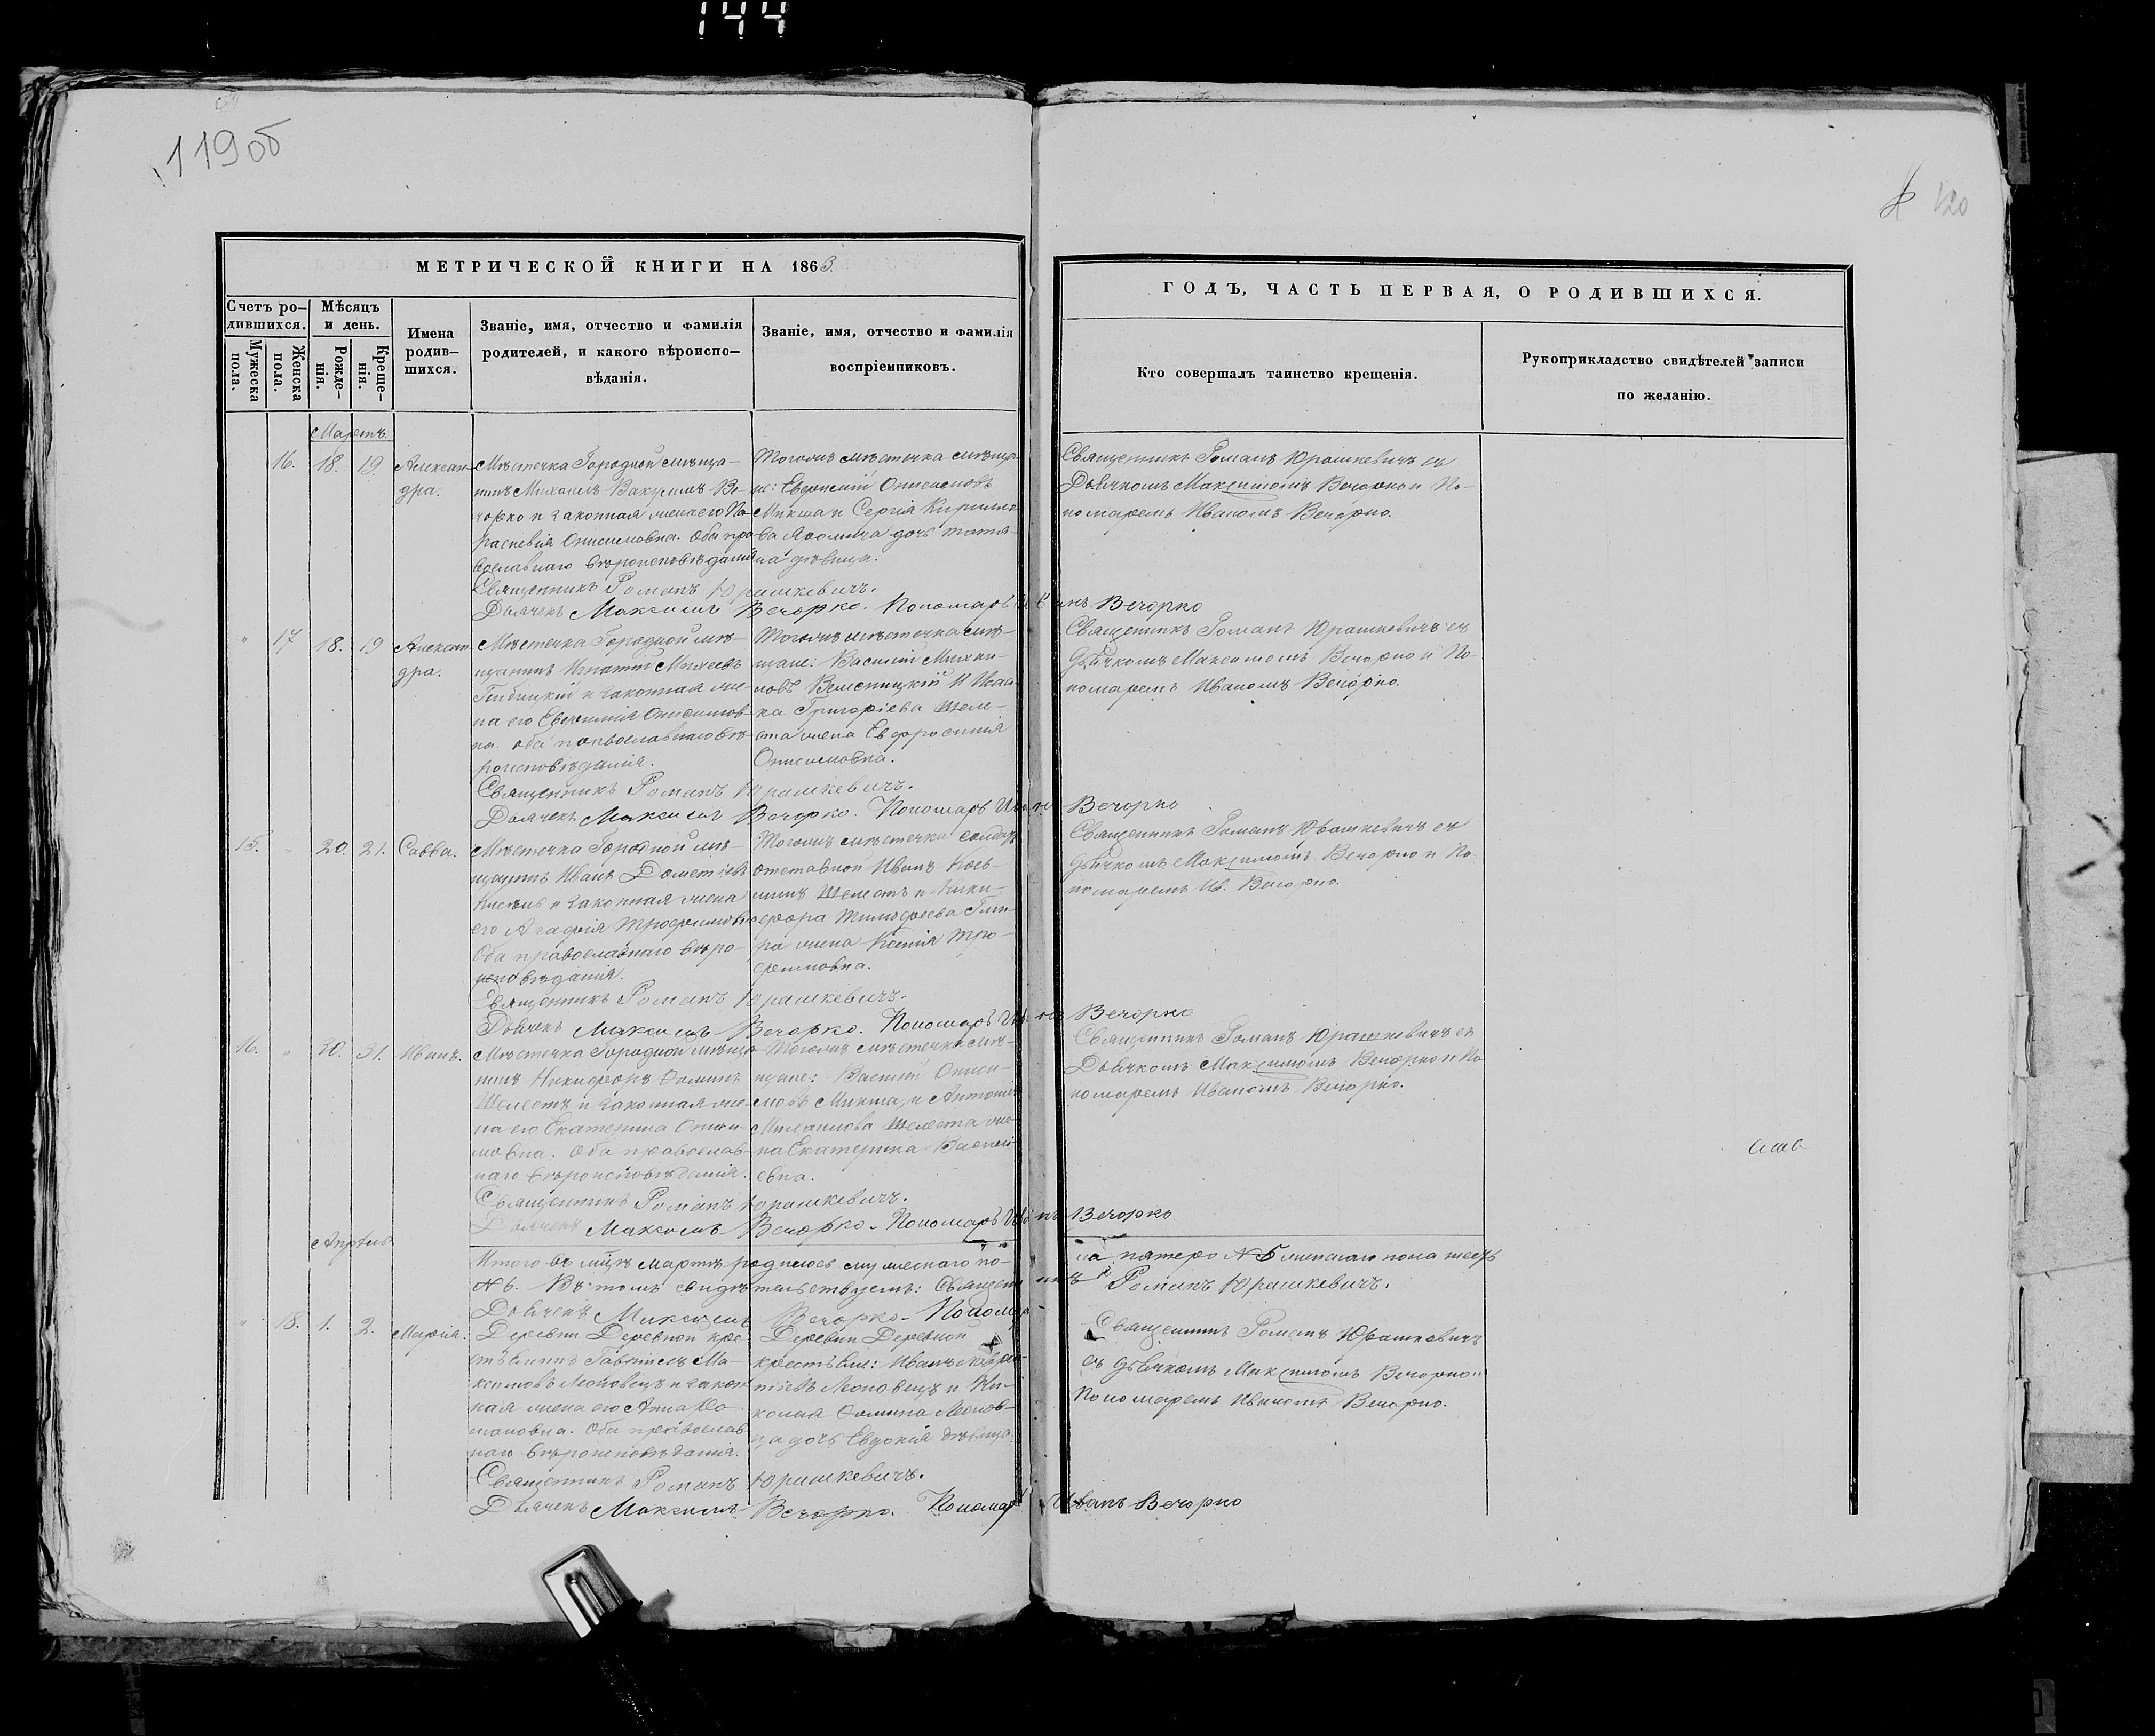 144
119об
120
МЕТРИЧЕСКОЙ КНИГИ НА 1863.
Счетъ ро-
дившихся.
Мужеска
пола.
Женска
пола.
Мѣсяцъ
и день.
Рожде-
нія.
Креще-
нія.
Имена
родив-
шихся.
Званіе, имя, отчество и фамилія
родителей, и какого вѣроиспо-
вѣданія.
Званіе, имя, отчество и фамилія
воспріемниковъ.
ГОДЪ, ЧАСТЬ ПЕРВАЯ, О РОДИВШИХСЯ.
Кто совершалъ таинство крещенія.
Рукоприкладство свидѣтелей записи
по желанію.
Мартъ
16. 18. 19. Алексан-
дра.
Мѣстечка Городной мѣща-
нинъ Михаилъ Ве-
чорко и законная жена его Па-
раскевія Онисимовна. Оба пра-
вославнаго вѣроисповѣданія
Тогожъ мѣстечка мѣща-
не: Онисимовъ
Микша и Сергія
дочь Татія-
на дѣвица.
Священникъ Романъ Юрашкевичъ съ
Дьячкомъ Максимомъ Вечорко и По-
номаремъ Иваномъ Вечорко.
Священникъ Романъ Юрашкевичъ.
Дьячекъ Максимъ Вечорко. Пономарь Иванъ Вечорко
" 17 18. 19 Алексан-
дра.
Мѣстечка Городной мѣ-
щанинъ Игнатій Михеевъ
и законная же-
на его Евфимія Онисимов-
на. Оба православнаго вѣ-
роисповѣданія.
Тогожъ мѣстечка мѣ-
щане: Василій
и Исаа-
ка Григоріева Шеле-
ста жена Евфросинія
Онисимовна.
Священникъ Романъ Юрашкевичъ съ
дьячкомъ Максимомъ Вечорко и По-
номаремъ Иваномъ Вечорко.
Священникъ Романъ Юрашкевичъ.
Дьячекъ Максимъ Вечорко. Пономарь Иванъ Вечорко
15. " 20. 21. Савва.
Мѣстечка Городной мѣ-
щанинъ Иванъ Дометіевъ
и законная жена
его Агафія Трофимовна
Оба православнаго вѣро-
исповѣданія.
Тогожъ мѣстечка солдатъ
отставной Иванъ Кось-
минъ Шелестъ и Ники-
фора Тимофеева
жена Ксенія Тро-
фимовна.
Священникъ Романъ Юрашкевичъ съ
дьячкомъ Максимомъ Вечорко и По-
номаремъ Ив. Вечорко.
Священникъ Романъ Юрашкевичъ.
Дьячекъ Максимъ Вечорко. Пономарь Иванъ Вечорко
16. " 30. 31. Иванъ.
Мѣстечка Городной мѣща-
нинъ Никифоръ Ѳоминъ
Шелестъ и законная же-
на его Екатерина Ониси-
мовна. Оба православ-
наго вѣроисповѣданія.
Тогожъ мѣстечка мѣ-
щане: Василій Ониси-
мовъ Микша, и Антонія
Михаилова Шелеста же-
на Екатерина Василі-
евна.
Священникъ Романъ Юрашкевичъ съ
Дьячкомъ Максимомъ Вечорко и По-
номаремъ Иваномъ Вечорко.
Священникъ Романъ Юрашкевичъ.
Дьячекъ Максимъ Вечорко. Пономарь Иванъ Вечорко
Апрѣль
Итого въ м-цѣ мартѣ родилось мужескаго по-
ла пятеро № 5 женскаго пола шесть
№ 6. Въ томъ свидѣтельствуемъ: Священникъ Романъ Юрашкевичъ.
Дьячекъ Максимъ Вечорко. Пономарь
" 18. 1. 2. Марія.
Деревни Деревной кре-
стьянинъ Гавріилъ Ма-
ксимовъ Леоновецъ и закон-
ная жена его Анна Ро-
мановна. Оба православ-
наго вѣроисповѣданія.
Деревни Деревной
крестьяне: Иванъ
Леоновецъ и Ни-
колая Ѳомина Леонов-
ца дочь Евдокія дѣвица.
Священникъ Романъ Юрашкевичъ
съ дьячкомъ Максимомъ Вечорко и
Пономаремъ Иваномъ Вечорко.
Священникъ Романъ Юрашкевичъ.
Дьячекъ Максимъ Вечорко. Пономарь Иванъ Вечорко